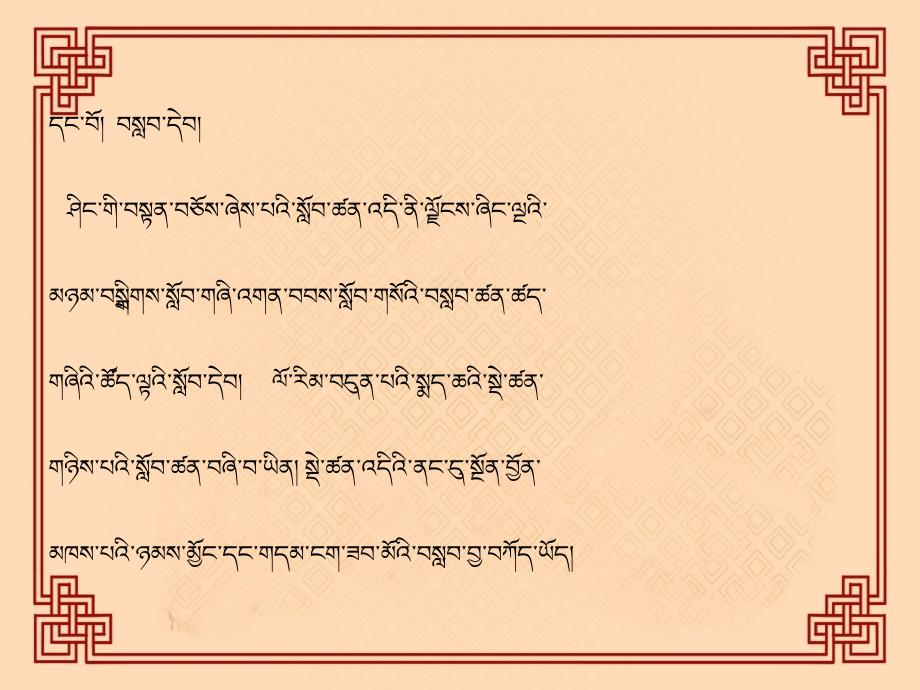 དང་བོ། བསླབ་དེབ།
ཤིང་གི་བསྟན་བཅོས་ཞེས་པའི་སློབ་ཚན་འདི་ནི་ལྗོངས་ཞིང་ལྔའི་
མཉམ་བསྒྲིགས་སློབ་གཞི་འགན་བབས་སློབ་གསོའི་བསླབ་ཚན་ཚད་
གཞིའི་ཚོད་ལྟའི་སློབ་དེབ། ལོ་རིམ་བདུན་པའི་སྨད་ཆའི་སྡེ་ཚན་
གཉིས་པའི་སློབ་ཚན་བཞི་བ་ཡིན། སྡེ་ཚན་འདིའི་ནང་དུ་སྔོན་བྱོན་
མཁས་པའི་ཉམས་མྱོང་དང་གདམ་ངག་ཟབ་མོའི་བསླབ་བྱ་བཀོད་ཡོད།